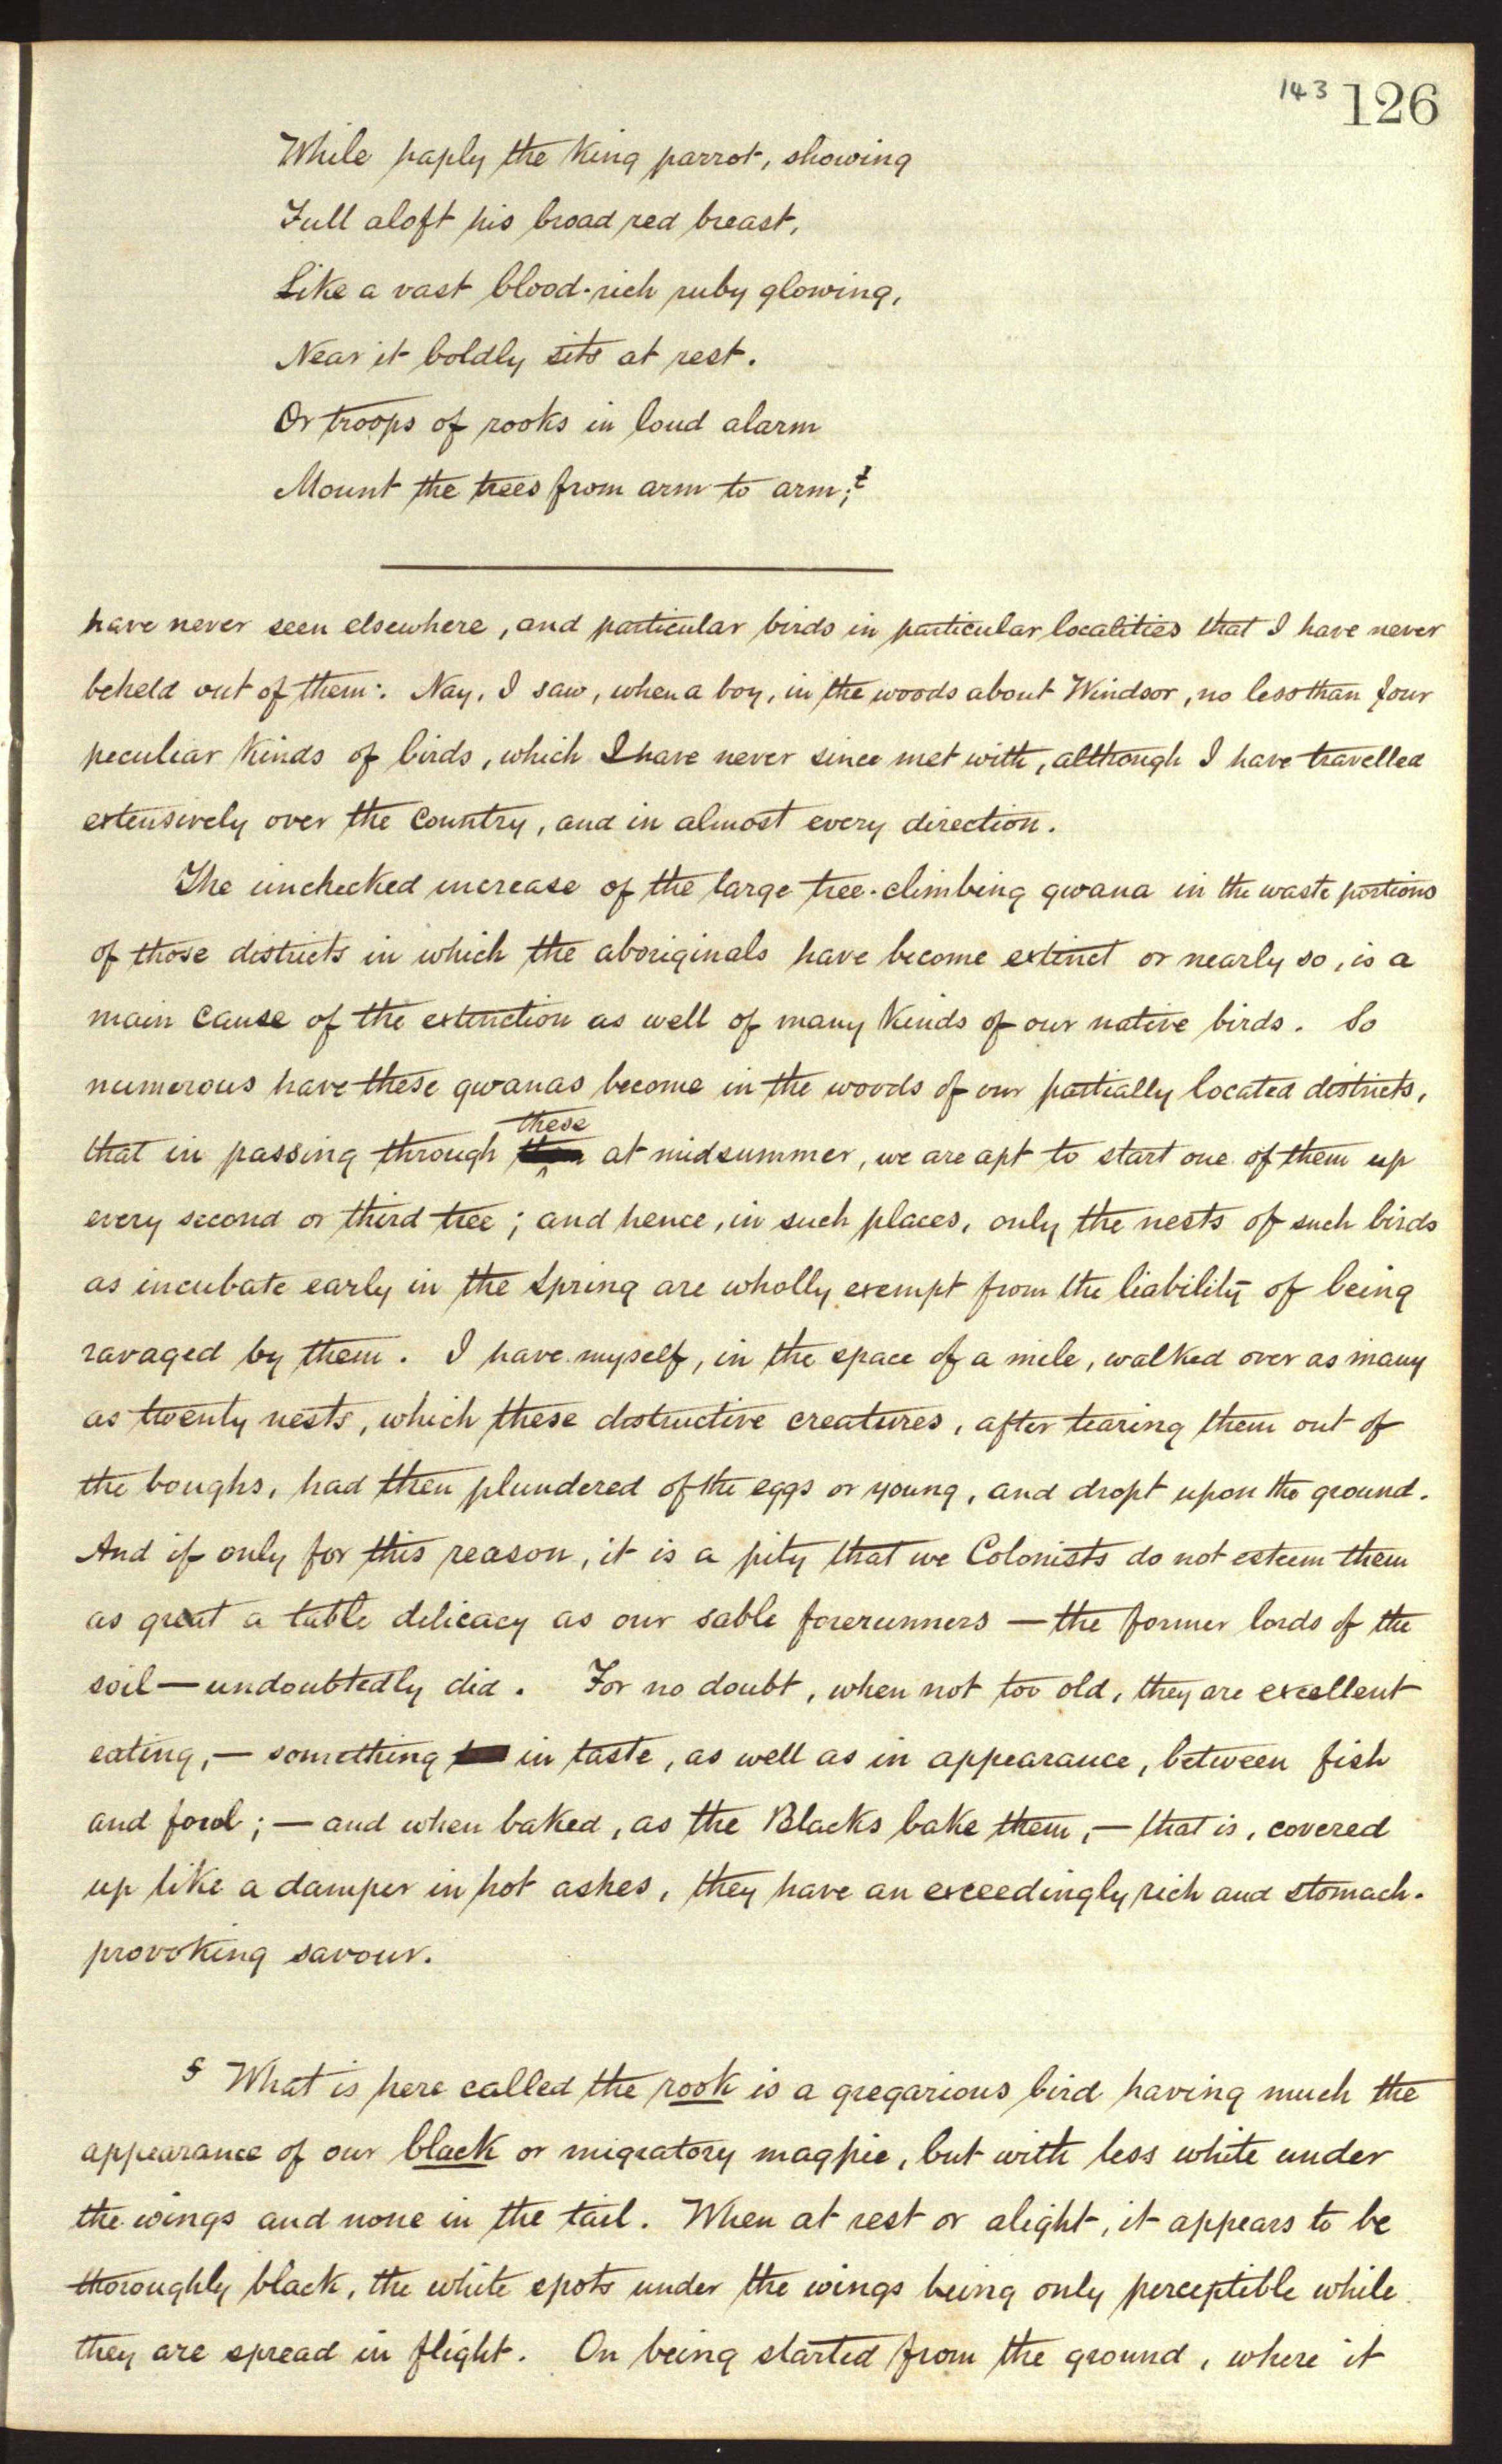 143 126
While haply the King parrot, showing
Full aloft his broad red breast,
Like a vast blood-rich ruby glowing,
Near it boldly sits at rest.
Or troops of rooks in loud alarm
Mount the trees from arm to arm;‡
have never seen elsewhere, and particular birds in particular localities that I have never
beheld out of them. Nay, I saw, when a boy, in the woods about Windsor, no less than four
peculiar kinds of birds, which I have never since met with, although I have travelled
extensively over the Country, and in almost every direction.
The unchecked increase of the large tree-climbing gwana in the waste portions
of those districts in which the aboriginals have become extinct or nearly so, is a
main cause of the extinction as well of many kinds of our native birds. So
numerous have these gwanas become in the woods of our partially located districts,
that in passing through these at midsummer, we are apt to start one of them up
every second or third tree; and hence, in such places, only the nests of such birds
as incubate early in the Spring are wholly exempt from the liability of being
ravaged by them. I have myself, in the space of a mile, walked over as many
as twenty nests, which these destructive creatures, after tearing them out of
the boughs, had then plundered of the eggs or young, and dropt upon the ground.
And if only for this reason, it is a pity that we Colonists do not esteem them
as great a table delicacy as our sable forerunners — the former lords of the
soil — undoubtedly did. For no doubt, when not too old, they are excellent
eating, — something in taste, as well as in appearance, between fish
and fowl; — and when baked, as the Blacks bake them, — that is, covered
up like a damper in hot ashes, they have an exceedingly rich and stomach-
provoking savour.
§ What is here called the rook is a gregarious bird having much the
appearance of our black or migratory magpie, but with less white under
the wings and none in the tail. When at rest or alight, it appears to be
thoroughly black, the white spots under the wings being only perceptible while
they are spread in flight. On being started from the ground, where it